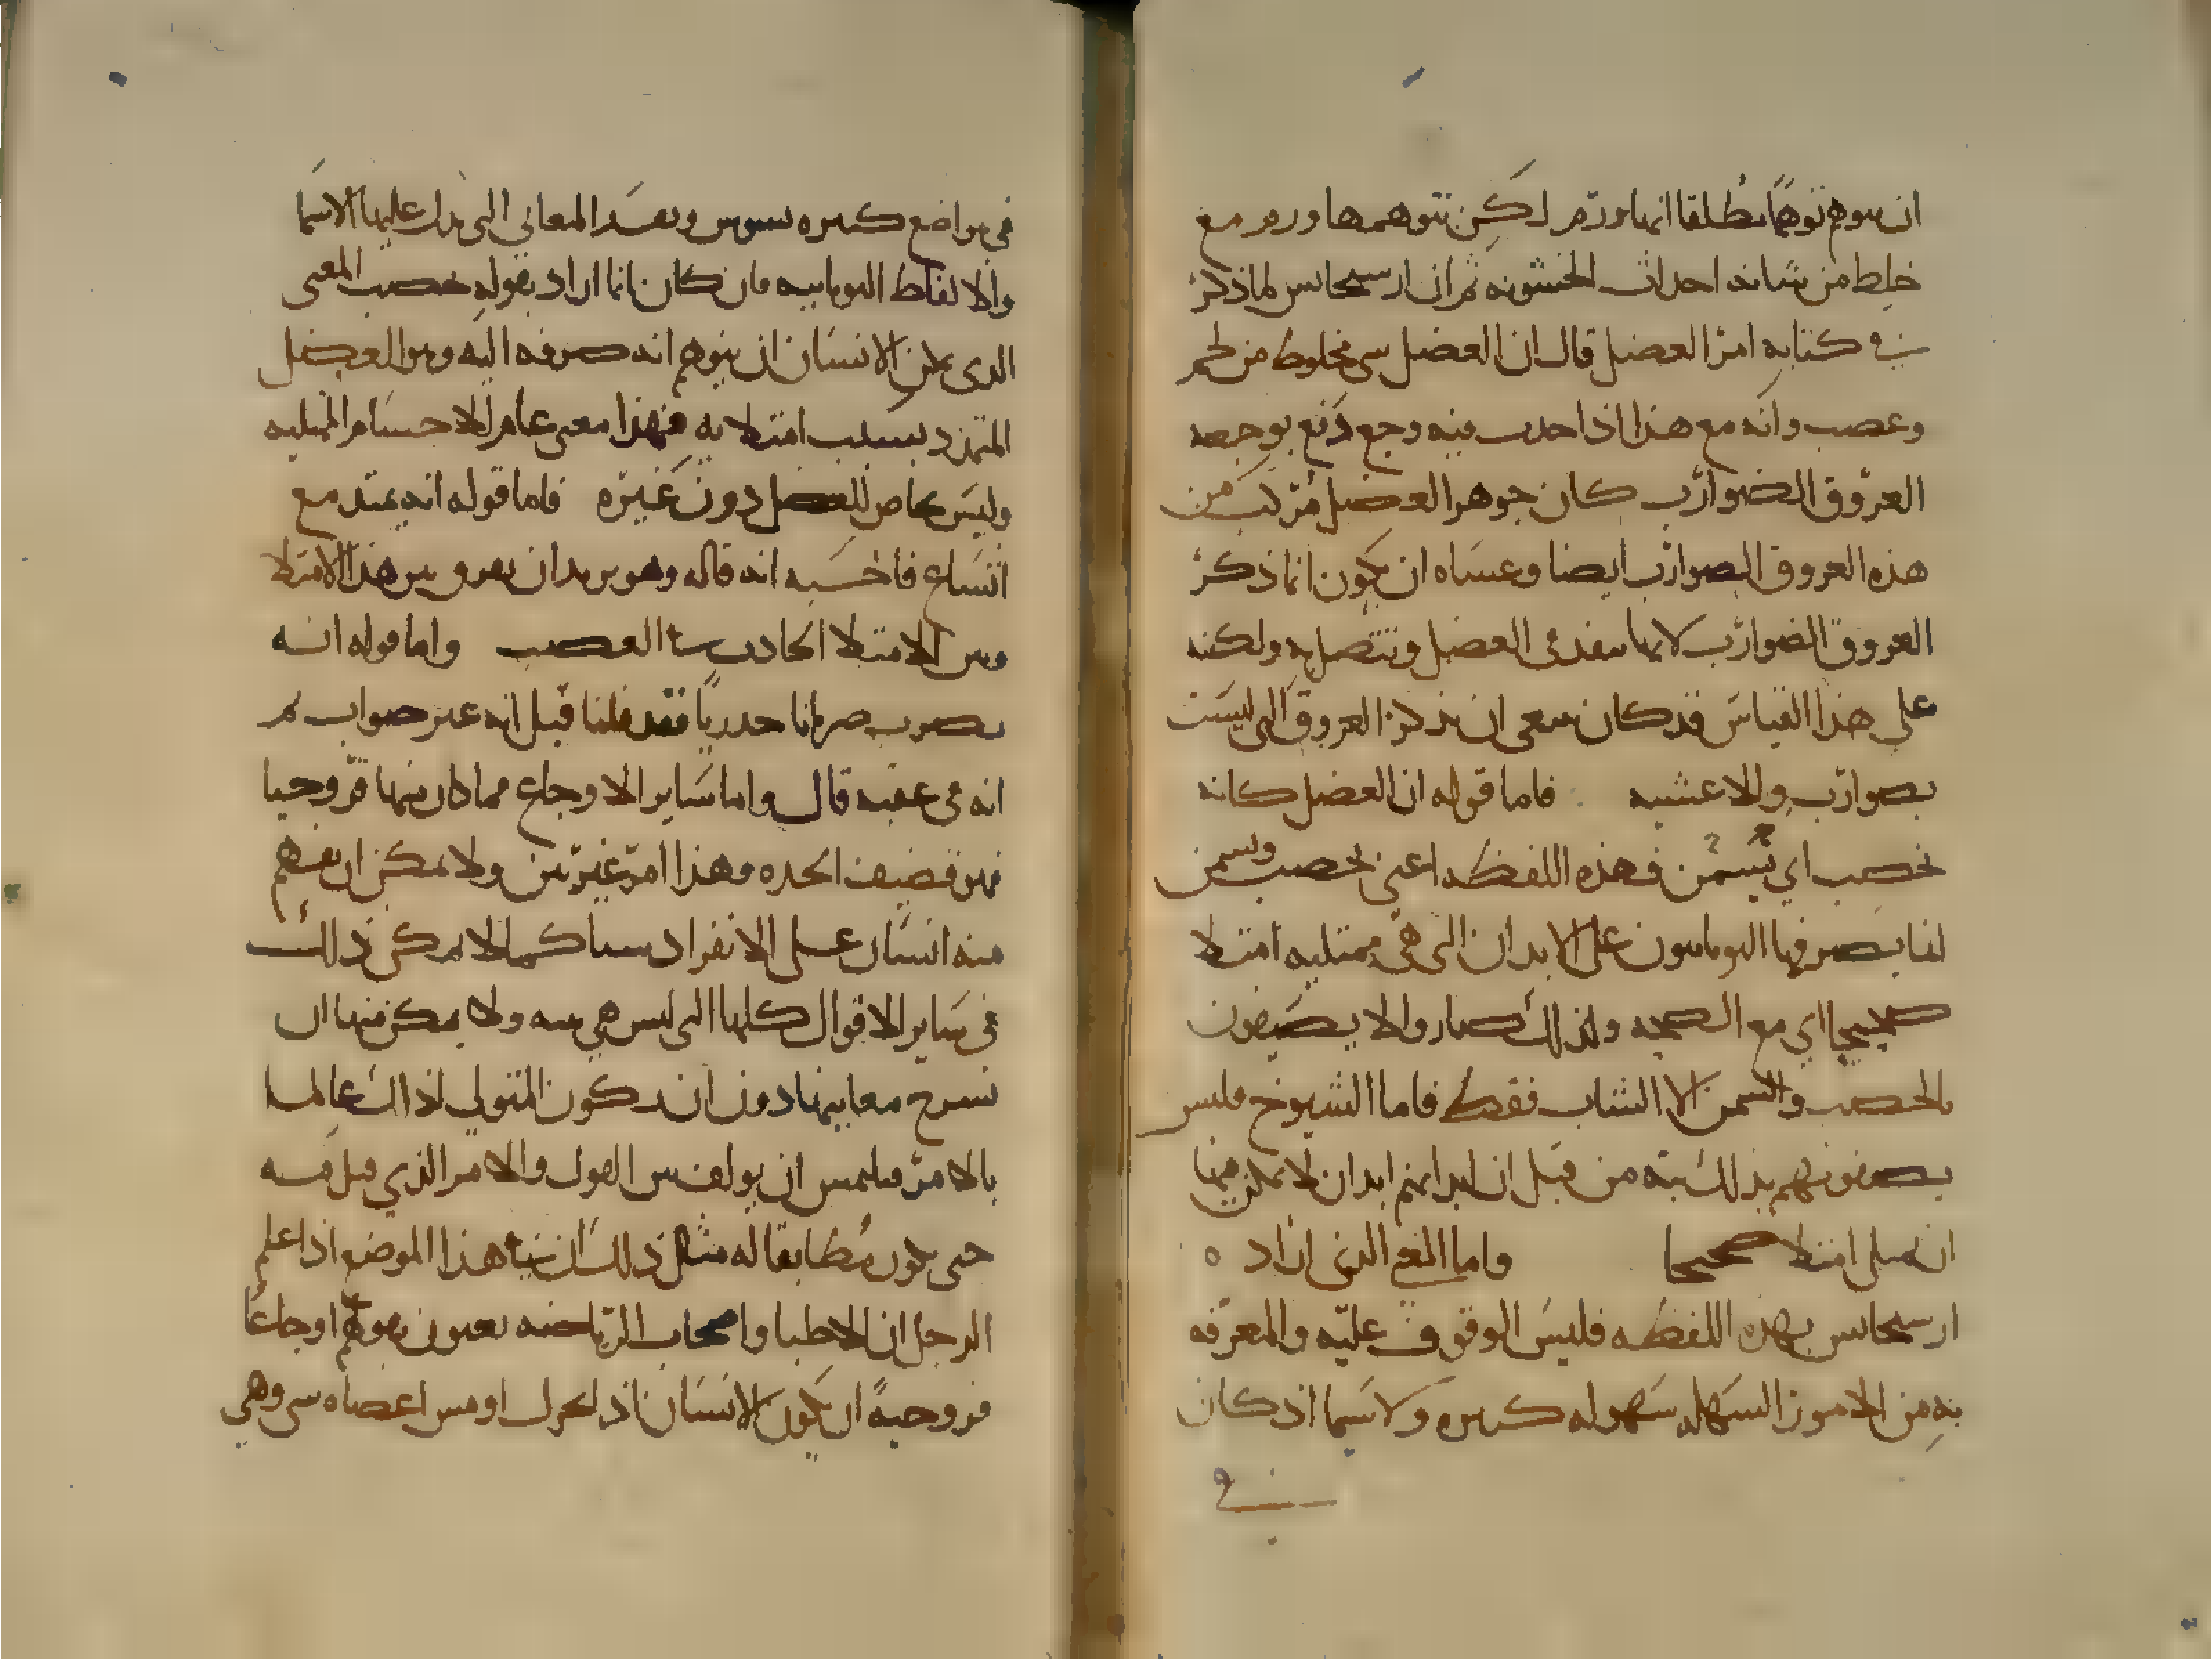 ان يتوهم توهما مطلقا انها ورم لكن نتوهمها ورم مع
خلط من شانه احداث الخشونه ثم ان ارسيجانس لما ذكر
في كتابه امر العضل قال ان العضل شي مخلوط من لحم
وعصب وانه مع هذا اذا حدث فيه وجع وقع بوجعه
العروق الضوارب كان جوهر العضل مركب من
هذه العروق الضوارب ايضا وعساه ان يكون انما ذكر
العروق الضوارب لانها تنفذ في العضل وتتصل به ولكنه
على هذا القياس قد كان ينبغي ان يذكر العروق التي ليست
بضوارب والاغشيه فاما قوله ان العضل كانه
يخصب اي يسمن فهذه اللفظه اعني يخصب ويسمن
انما يصرفها اليونانيون على الابدان التي هي ممتليه امتلا
صحيحا اي مع الصحه ولذلك صاروا لا يصفون
بالخصب والسمن الا الشاب فقط فاما الشيوخ فليس
يصفونهم بذلك بته من قبل ان ابدانهم ابدان لا يمكن فيها
ان تمتلي امتلا صحيحا واما المعنى الذي اراد ه
ارسيجانس بهذه اللفظه فليس الوقوف عليه والمعرفه
به من الامور السهله سهوله كثيره ولا سيما اذ كان
في
في مواضع كثيره يشوش ويفسد المعاني التي تدل عليها الاسما
والالفاظ اليونانيه فان كان انما اراد بقوله خصب المعنى
الذي يمكن الانسان ان يتوهم انه صرفه اليه وهو العضل
المتمدد بسبب امتلا به فهذا معنى عام للاجسام الممتليه
وليس بخاص للعضل دون غيره فاما قوله انه يمتد مع
اتساع فاحسبه انه قاله وهو يريد ان يفرق بين هذا الامتلا
وبين الامتلا الحادث في العصب واما قوله انه
يضرب ضربانا خدريا فقد قلنا قبل انه غير صواب ثم
انه في عقبه قال واما ساير الاوجاع مما كان منها قروحيا
فهو قضيف الحده وهذا امر غير بين ولا يمكن ان يفهم
منه انسان على الانفراد شيئا كما لا يمكن ذلك
في ساير الاقوال كلها التي ليس هي بينه ولا يمكن منها ان
تشرح معانيها دون ان يكون المتولي لذلك عالما
بالامر فيلتمس ان يولف بين القول والامر الذي قيل فيه
حتى يكون مطابقا له مثال ذلك ان في هذا الموضع اذا علم
الرجل ان الاطبا واصحاب الرياضه يعنون بقولهم اوجاعا
قروحية ان يكون الانسان اذا تحرك او مس اعضاه شي وهي